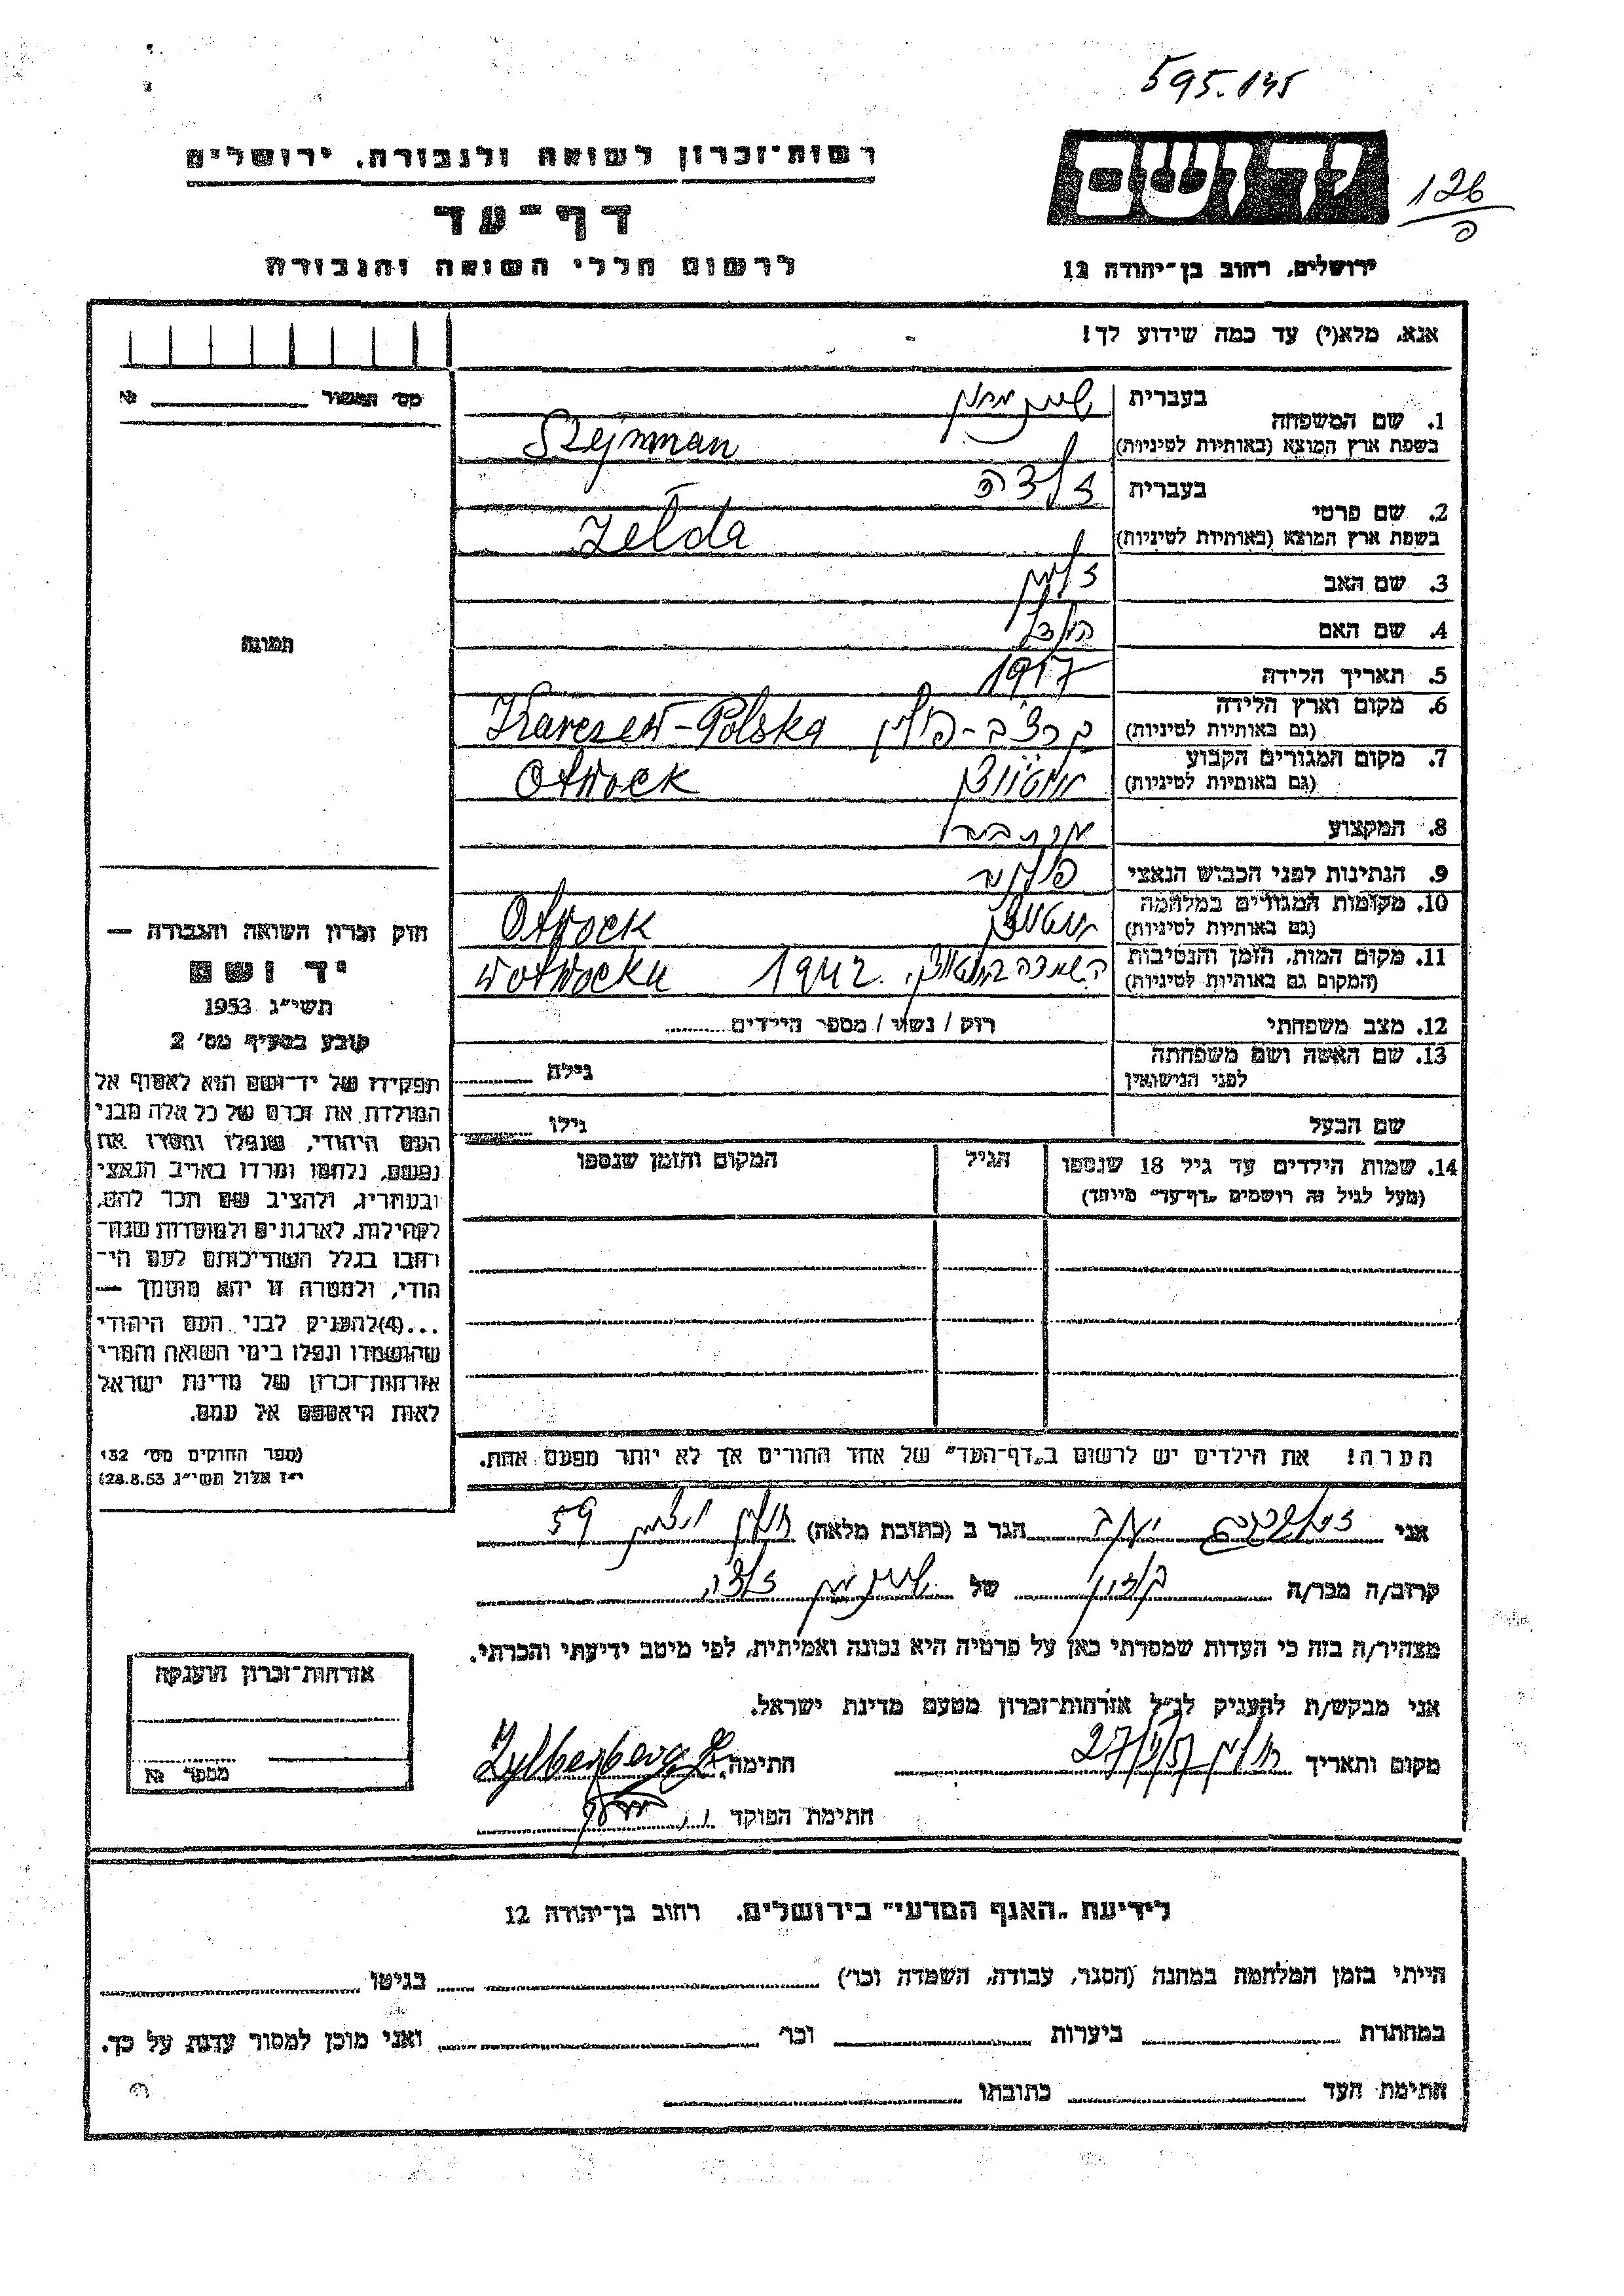 595.145
רשות-זכרון לשואה ולגבורה, ירושלים
יד ושם
126
דף-עד
לרשום חללי השואה והגבורה
ירושלים, רחוב בן-יהודה 12
אנא, מלא(י) עד כמה שידוע לך!
מס' תאשור №
1. שם המשפחה
בעברית שטיינמן
בשפת ארץ המוצא (באותיות לטיניות) Szejnman
2. שם פרטי
בעברית זלדה
בשפת ארץ המוצא (באותיות לטיניות) Zelda
3. שם האב זלמן
4. שם האם
5. תאריך הלידה 1917
6. מקום וארץ הלידה
(גם באותיות לטיניות) קרצ'ב-פולין Karczew-Polska
7. מקום המגורים הקבוע
(גם באותיות לטיניות) אוטווצק Otwock
8. המקצוע
9. הנתינות לפני הכבוש הנאצי פולנית
10. מקומות המגורים במלחמה
(גם באותיות לטיניות) אוטווצק Otwock
11. מקום המות, הזמן והנסיבות
(המקום גם באותיות לטיניות) 1942. w Otwocku
12. מצב משפחתי רוק / נשוי / מספר הילדים
13. שם האשה ושם משפחתה
לפני הנישואין גילה
שם הבעל גילו
14. שמות הילדים עד גיל 18 שנספו הגיל המקום והזמן שנספו
(מעל לגיל זה רושמים „דף-עד" מיוחד)
תמונה
חוק זכרון השואה והגבורה —
יד ושם
תשי"ג 1953
קובע בסעיף מס' 2
תפקידו של יד-ושם הוא לאסוף אל
המולדת את זכרם של כל אלה מבני
העם היהודי, שנפלו ומסרו את
נפשם, נלחמו ומרדו באויב הנאצי
ובעוזריו, ולהציב שם וזכר להם,
לקהילות, לארגונים ולמוסדות שנח-
רבו בגלל השתייכותם לעם הי-
הודי, ולמטרה זו יהא מוסמך —
...(4)להעניק לבני העם היהודי
שהושמדו ונפלו בימי השואה והמרי
אזרחות-זכרון של מדינת ישראל
לאות היאספם אל עמם.
(ספר החוקים מס' 132
י"ז אלול תשי"ג 28.8.53)
הערה! את הילדים יש לרשום ב„דף-העד" של אחד ההורים אך לא יותר מפעם אחת.
אני זילברברג הגר ב (כתובת מלאה) חולון 59
קרוב/ה מכר/ה של שטיינמן זלדה
מצהיר/ה בזה כי העדות שמסרתי כאן על פרטיה היא נכונה ואמיתית, לפי מיטב ידיעתי והכרתי.
אני מבקש/ת להעניק לנ"ל אזרחות-זכרון מטעם מדינת ישראל.
מקום ותאריך חולון חתימה Zylberberg
חתימת הפוקד
אזרחות-זכרון הוענקה
מספר №
לידיעת „האגף המדעי" בירושלים, רחוב בן-יהודה 12
הייתי בזמן המלחמה במחנה (הסגר, עבודה, השמדה וכו') בגיטו
במחתרת ביערות וכו' ואני מוכן למסור עדות על כך.
חתימת העד כתובתו